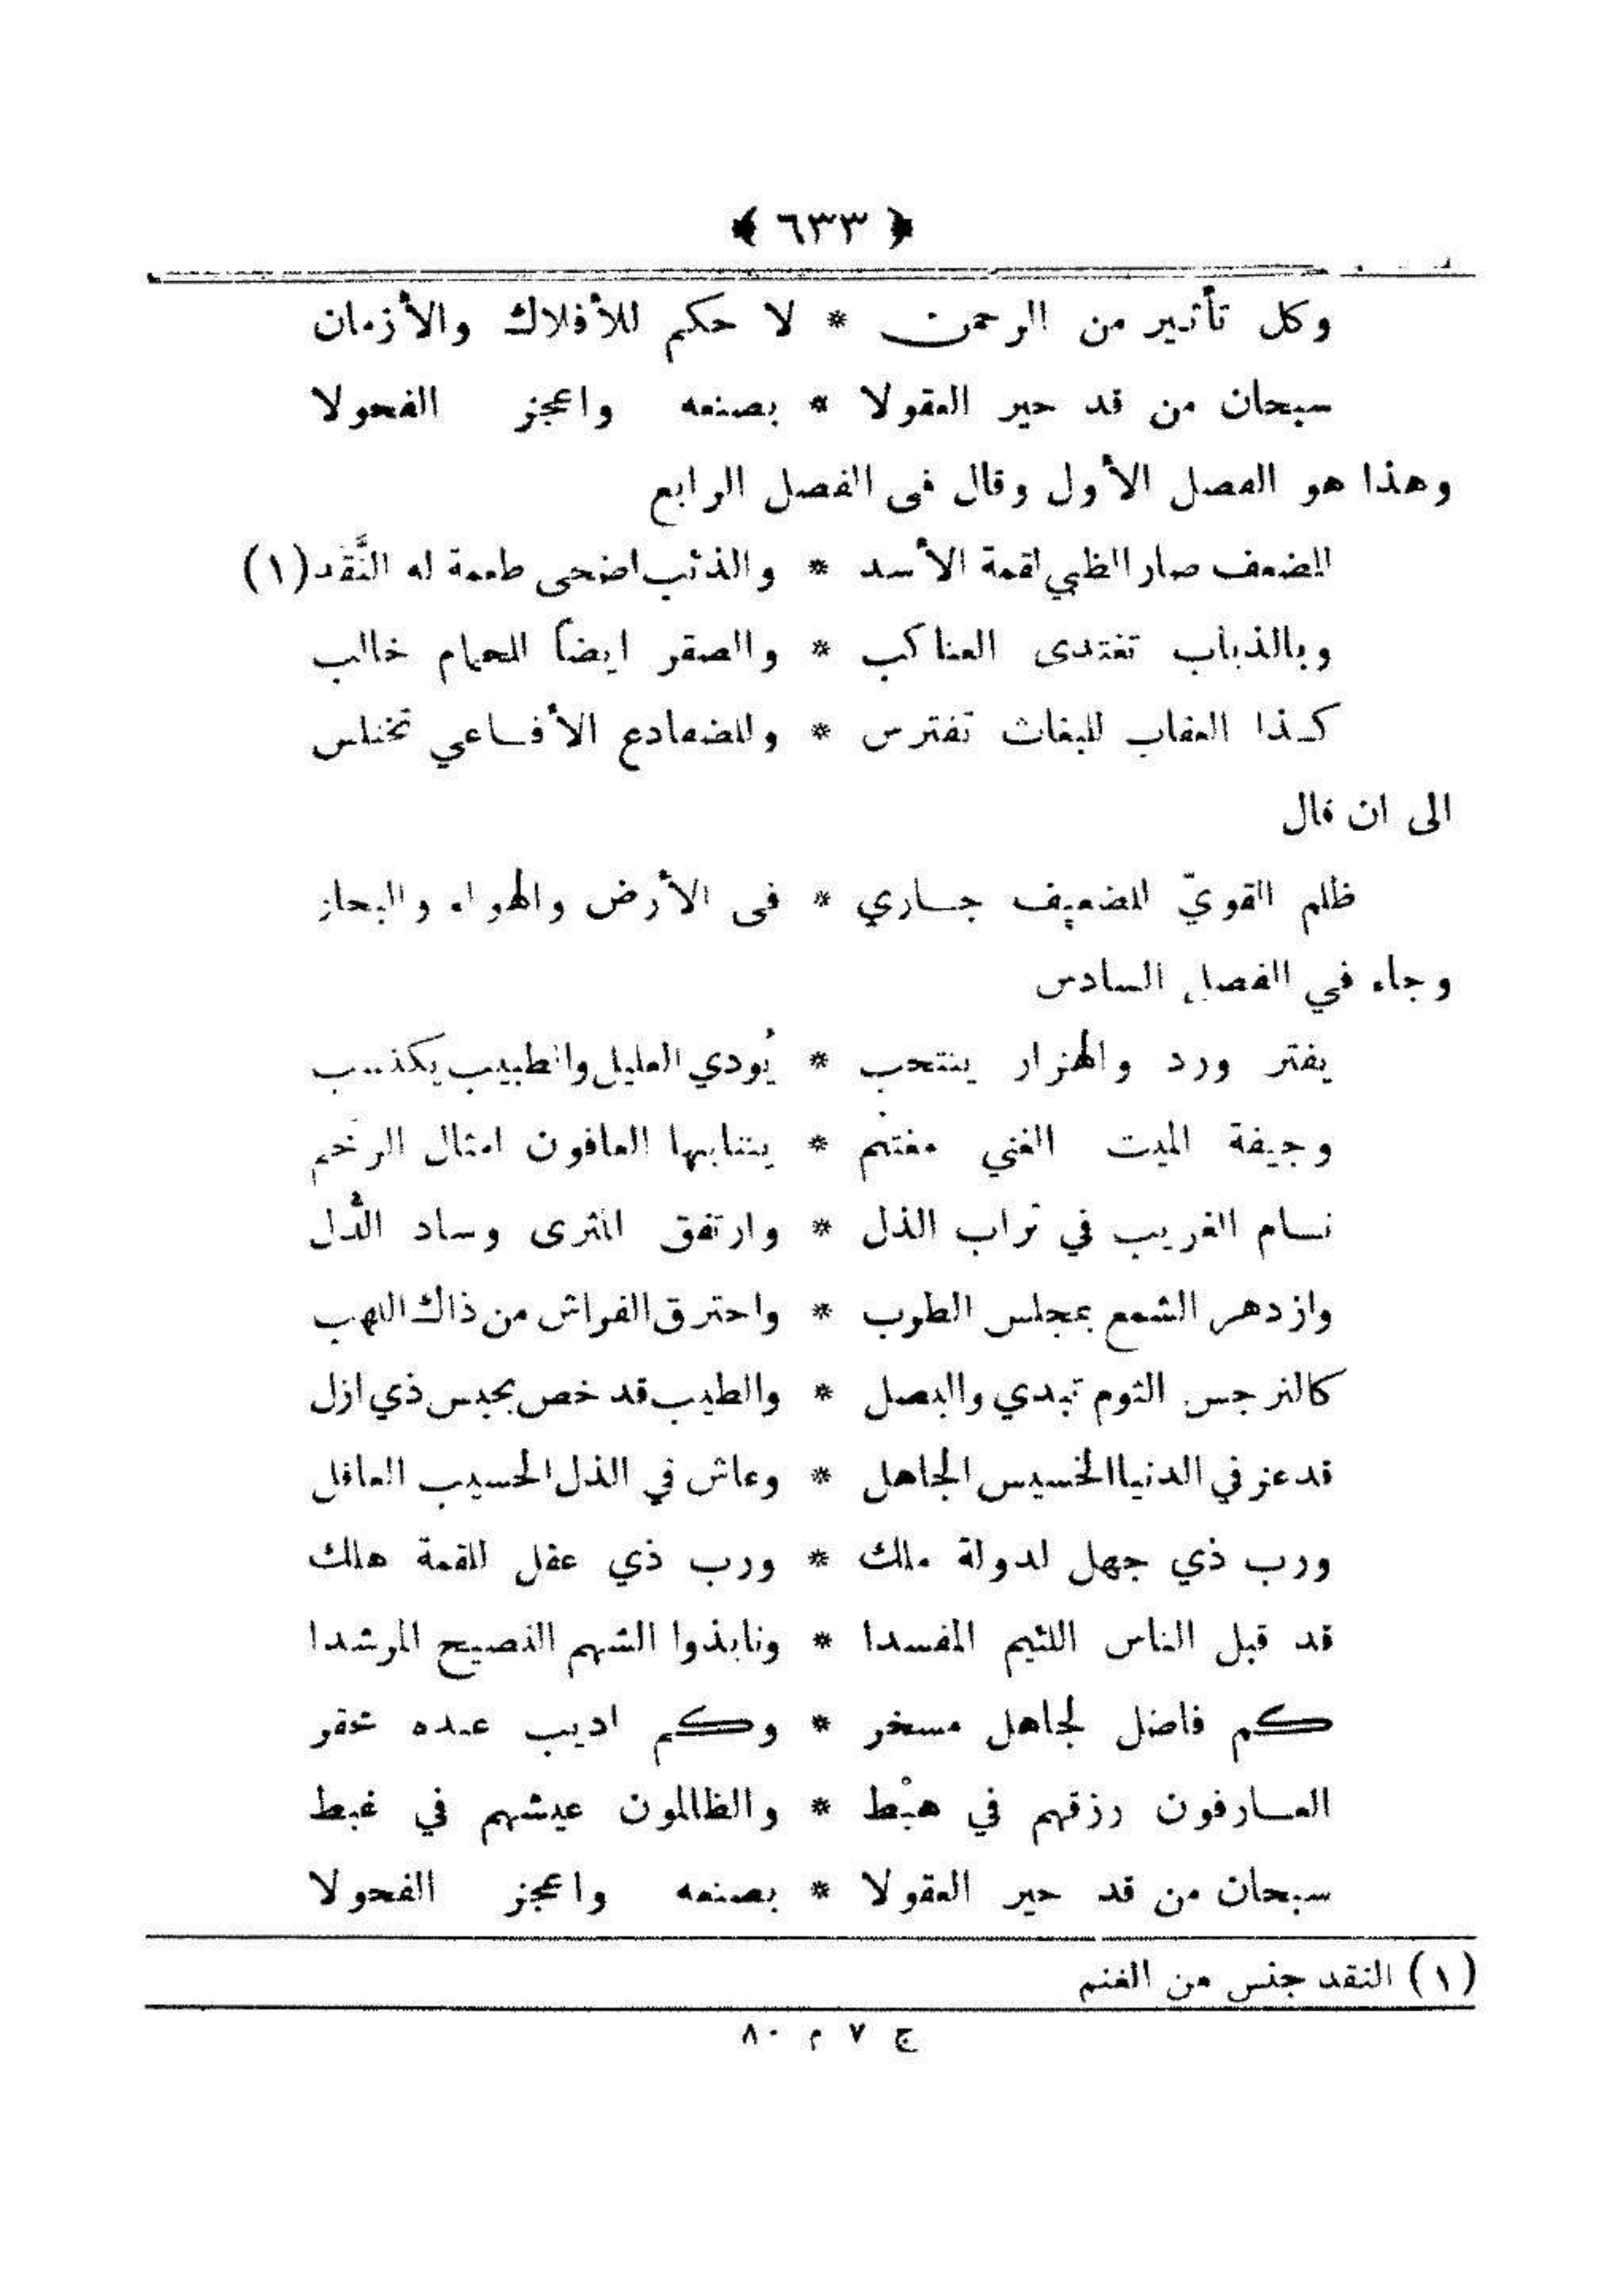 ﴿ ٦٣٣ ﴾
وكل تأثير من الرحمن * لا حكم للأفلاك والأزمان
سبحان من قد حير العقولا * بصنعه واعجز الفحولا
وهذا هو الفصل الأول وقال فى الفصل الرابع
للضعف صار الظبي لقمة الأسد * والذئب اضحى طعمة له النَّقَد (١)
وبالذباب تغتدى العناكب * والصقر ايضاً للحمام خالب
كذا العقاب للبغاث تفترس * وللضفادع الأفاعي تختلس
الى ان قال
ظلم القويّ للضعيف جاري * فى الأرض والهواء والبحار
وجاء في الفصل السادس
يفتر ورد والهزار ينتحب * يُودي العليل والطبيب يكتسب
وجيفة الميت الغني مغتنم * ينتابها العافون امثال الرخم
نام الغريب في تراب الذل * وارتفق المثرى وساد الذُل
وازدهر الشمع بمجلس الطرب * واحترق الفراش من ذاك اللهب
كالنرجس الثوم تبدي والبصل * والطيب قد خص بحبس ذي ازل
قد عز في الدنيا الخسيس الجاهل * وعاش في الذل الحسيب العاقل
ورب ذي جهل لدولة ملك * ورب ذي عقل للقمة هلك
قد قبل الناس اللئيم المفسدا * ونابذوا الشهم النصيح المرشدا
كم فاضل لجاهل مسخر * وكم اديب عنده محقر
العارفون رزقهم في هبْط * والظالمون عيشهم في غبط
سبحان من قد حير العقولا * بصنعه واعجز الفحولا
(١) النقد جنس من الغنم
ج ٧ م ٨٠